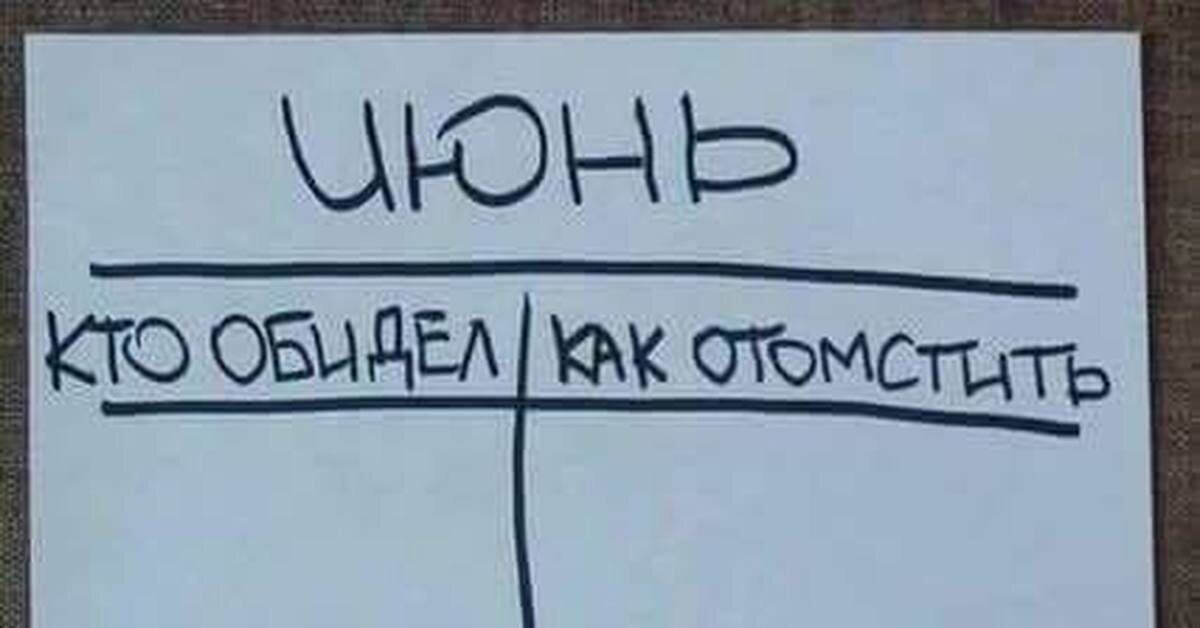 ИЮНЬ
КТО ОБИДЕЛ КАК ОТОМСТИТЬ